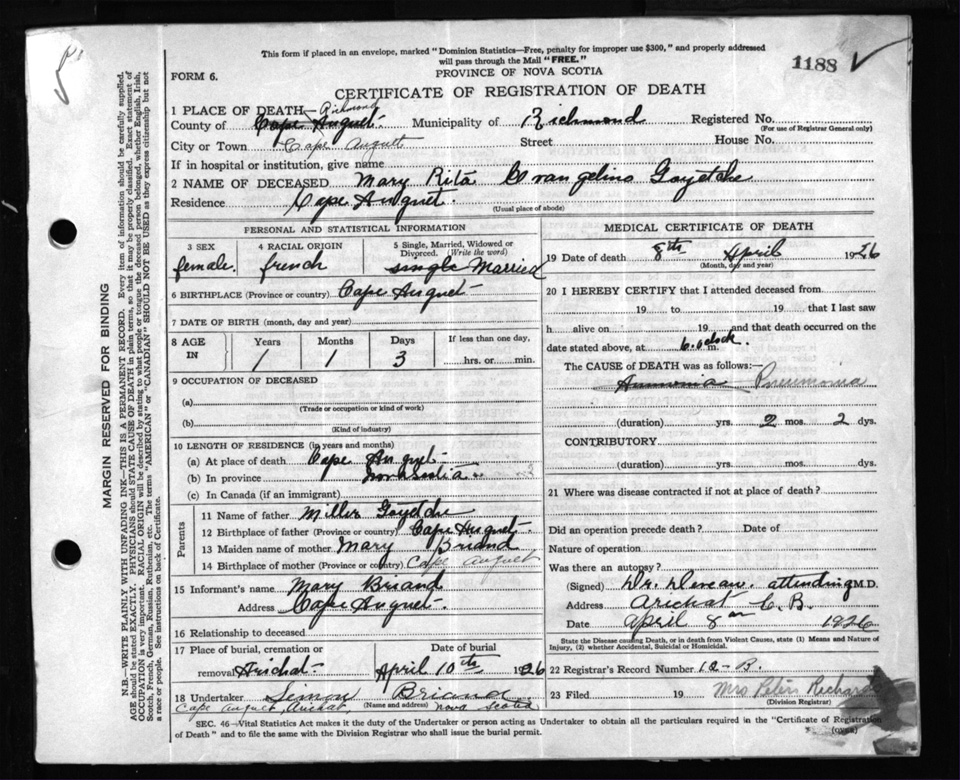 This form if placed in an envelope, marked "Dominion Statistics—Free, penalty for improper use $300," and properly addressed
will pass through the Mail "FREE."
1188
FORM 6.
PROVINCE OF NOVA SCOTIA
CERTIFICATE OF REGISTRATION OF DEATH
1 PLACE OF DEATH— Richmond
County of Cape Auguet Municipality of Richmond Registered No.
(For use of Registrar General only)
City or Town Cape Auguet Street House No.
If in hospital or institution, give name
2 NAME OF DECEASED Mary Rita Evangelino Goyetche
Residence Cape Auguet.
(Usual place of abode)
PERSONAL AND STATISTICAL INFORMATION
3 SEX 4 RACIAL ORIGIN 5 Single, Married, Widowed or
Divorced. (Write the word)
female. french single Married
6 BIRTHPLACE (Province or country) Cape Auguet
7 DATE OF BIRTH (month, day and year)
8 AGE IN Years Months Days If less than one day,
1 1 3 hrs. or min.
9 OCCUPATION OF DECEASED
(a)
(Trade or occupation or kind of work)
(b)
(Kind of industry)
10 LENGTH OF RESIDENCE (in years and months)
(a) At place of death Cape Auguet
(b) In province Nova Scotia
(c) In Canada (if an immigrant)
Parents
11 Name of father Miller Goyetche
12 Birthplace of father (Province or country) Cape Auguet.
13 Maiden name of mother Mary Briand
14 Birthplace of mother (Province or country) Cape Auguet
15 Informant's name Mary Briand
Address Cape Auguet.
16 Relationship to deceased
17 Place of burial, cremation or Date of burial
removal Arichat April 10th 1926
18 Undertaker Simon Briand
(Name and address)
Cape Auguet, Arichat, Nova Scotia
MEDICAL CERTIFICATE OF DEATH
19 Date of death 8th April 1926
(Month, day and year)
20 I HEREBY CERTIFY that I attended deceased from
19 to 19 that I last saw
h alive on 19 and that death occurred on the
date stated above, at 6.oclock. m.
The CAUSE of DEATH was as follows:—
Pneumonia
(duration) yrs. 2 mos. 2 dys.
CONTRIBUTORY
(duration) yrs. mos. dys.
21 Where was disease contracted if not at place of death?
Did an operation precede death? Date of
Nature of operation
Was there an autopsy?
(Signed) Dr. Deveau. attending M.D.
Address Arichat C.B.
Date April 8th 1926
State the Disease causing Death, or in death from Violent Causes, state (1) Means and Nature of
Injury, (2) whether Accidental, Suicidal or Homicidal.
22 Registrar's Record Number 12-B.
23 Filed 19 Mrs Peter Richard
(Division Registrar)
SEC. 46—Vital Statistics Act makes it the duty of the Undertaker or person acting as Undertaker to obtain all the particulars required in the "Certificate of Registration
of Death" and to file the same with the Division Registrar who shall issue the burial permit.
(over)
MARGIN RESERVED FOR BINDING
N.B.—WRITE PLAINLY WITH UNFADING INK—THIS IS A PERMANENT RECORD. Every item of information should be carefully supplied.
AGE should be stated EXACTLY. PHYSICIANS should STATE CAUSE OF DEATH in plain terms, so that it may be properly classified. Exact statement of
OCCUPATION is very important. RACIAL ORIGIN will be described by stating to what people or tongue the deceased person belonged, whether English, Irish,
Scotch, French, German, Russian, Ruthenian, etc. The terms "AMERICAN" or "CANADIAN" SHOULD NOT BE USED as they express citizenship but not
a race or people. See instructions on back of Certificate.